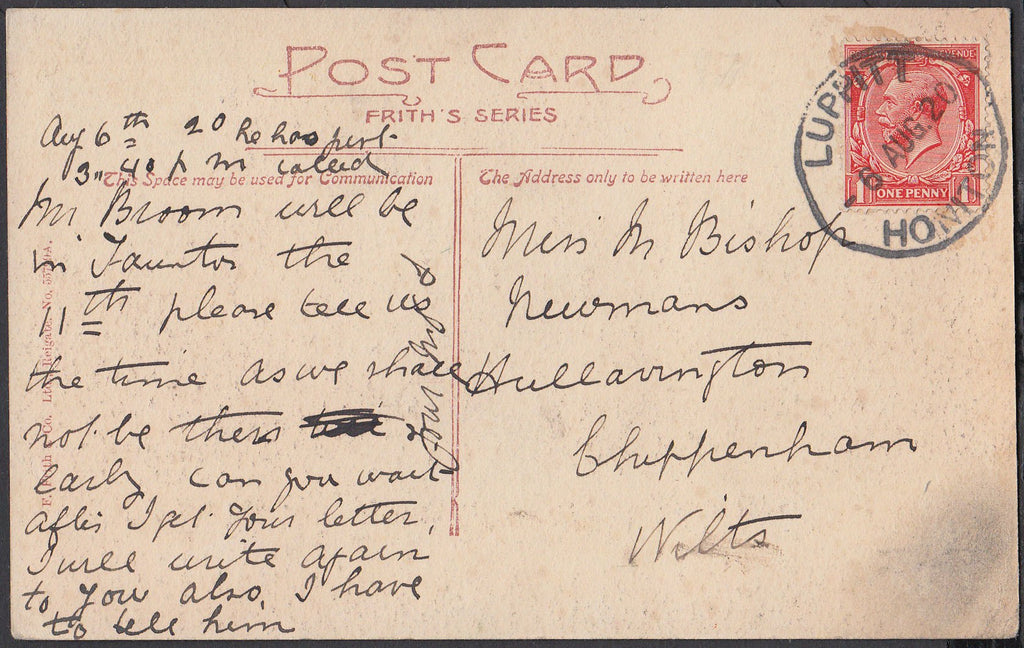 POST CARD
FRITH'S SERIES
This Space may be used for Communication
The Address only to be written here
Aug 6th 20 he has just
3"40 p m called
Mr Broom will be
in Taunton the
11th please tell us
the time as we shall
not be there
early can you wait
after I get your letter,
I will write again
to you also, I have
to tell him
your
Miss M. Bishop
Newmans
Hullavington
Chippenham
Wilts
LUPPITT
HONITON
-6 AUG.20
REVENUE
1 ONE PENNY 1
F. Frith & Co. Ltd., Reigate. No.